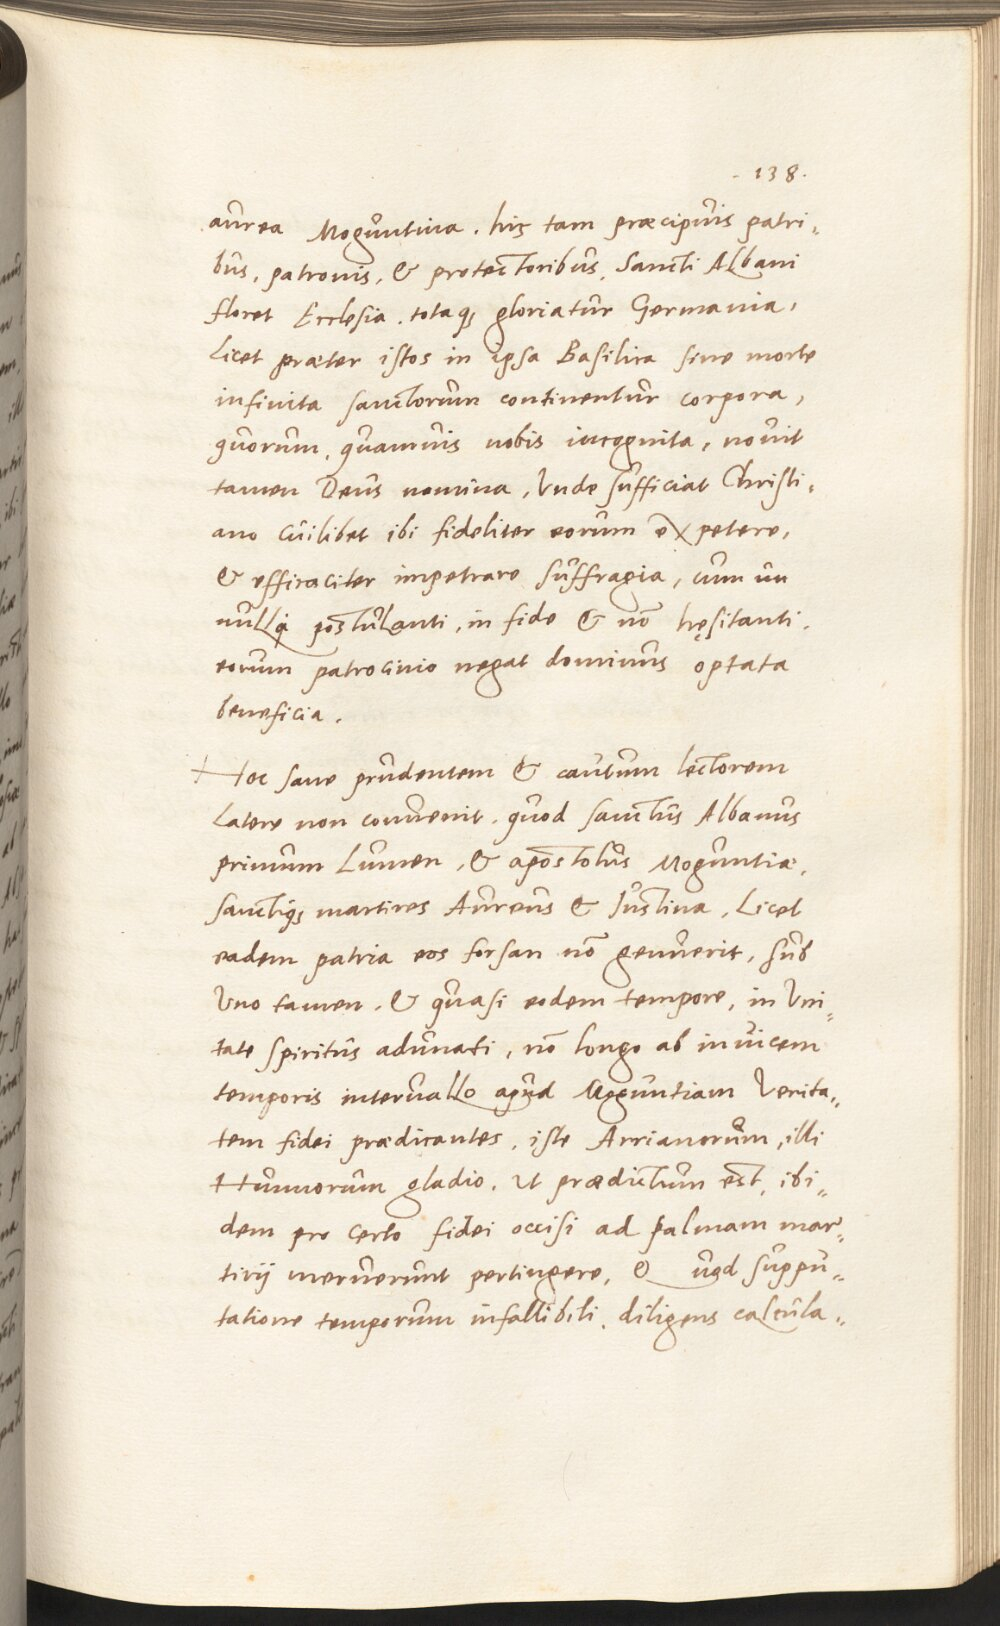 138.
aurea Moguntina. his tam præcipuis patri-
bus, patronis, & protectoribus, Sancti Albani
floret Ecclesia. totaq; gloriatur Germania,
Licet præter istos in ipsa Basilica sine morte
infinita sanctorum continentur corpora,
quorum, quamuis nobis incognita, nouit
tamen Deus nomina, Vnde sufficiat Christi-
ano Cuilibet ibi fideliter eorum expetere,
& efficaciter impetrare suffragia, cum
postulanti, in fide & nō hęsitanti.
eorum patrocinio negat dominus optata
beneficia.
Hoc sane prudentem & cautum lectorem
Latere non conuenit. quod sanctus Albanus
primum Lumen, & apostolus Moguntiæ,
sanctiq; martires Aureus & Iustina, Licet
eadem patria eos forsan nō genuerit, sub
Vno tamen, & quasi eodem tempore, in Vni-
tate spiritus adunati, nō longo ab inuicem
temporis interuallo apud Moguntiam Verita-
tem fidei prædicantes, iste Arrianorum, illi
Hunnorum gladio, ut prædictum est, ibi-
dem pro certo fidei occisi ad palmam mar-
tirij meruerunt pertingere, & suppu-
tatione temporum infallibili, diligens calcula-